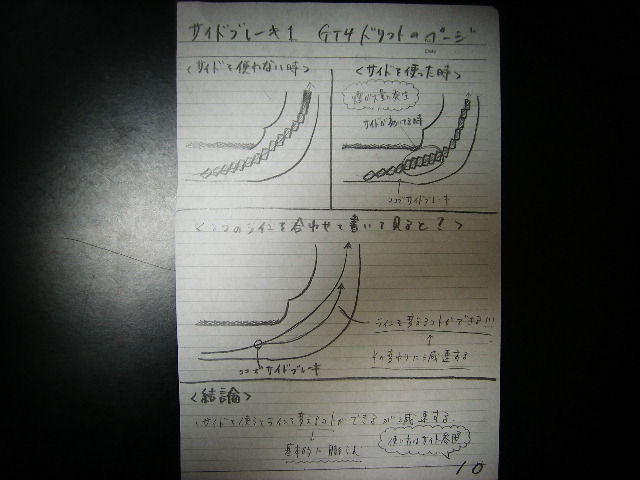 サイドブレーキ1 GT4ドリフトのページ
Date
<サイドを使わない時>
<サイドを使った時>
煙が大量に発生
サイドが効いてる時
ココでサイドブレーキ
<2つのラインを合わせて書いて見ると?>
ラインを変えるコトができる!!!
その変わりに減速する
ココでサイドブレーキ
<結論>
サイドを使うとラインを変えるコトができるが減速する。
基本的に
使い方はサイト参照
10